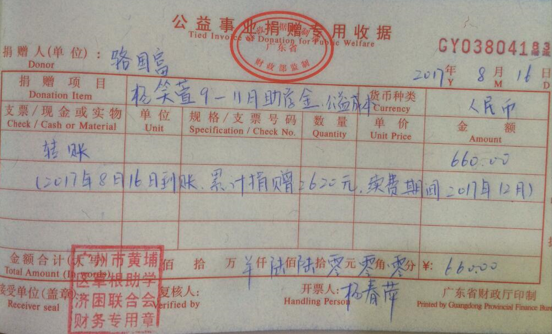 公益事业捐赠专用收据
Tied Invoice of Donation for Public Welfare
广东省
财政部监制
GY038041
捐赠人(单位):
Donor
骆国富
2017年 8月 16日
Y M D
捐赠项目
Donation Item
杨笑萱9-11月助学金
货币种类
Currency
人民币
支票/现金或实物
Check / Cash or Material
单位
Unit
规格/支票号码
Specification / Check No.
数量
Quantity
单价
Unit Price
金额
Amount
转账
660.00
(2017年8月16日到账,累计捐赠2620元,续费期间2017年12月)
金额合计
Total Amount
佰 拾 万 仟 陆佰 陆拾 零元 零角 零分 ¥: 660.00
接受单位(盖章)
Receiver seal
广州市黄埔
区
根助学
济困联合会
财务专用章
复核人:
Verified by
开票人:
Handling Person
杨春萍
广东省财政厅印制
Printed by Guangdong Provincial Finance Bureau